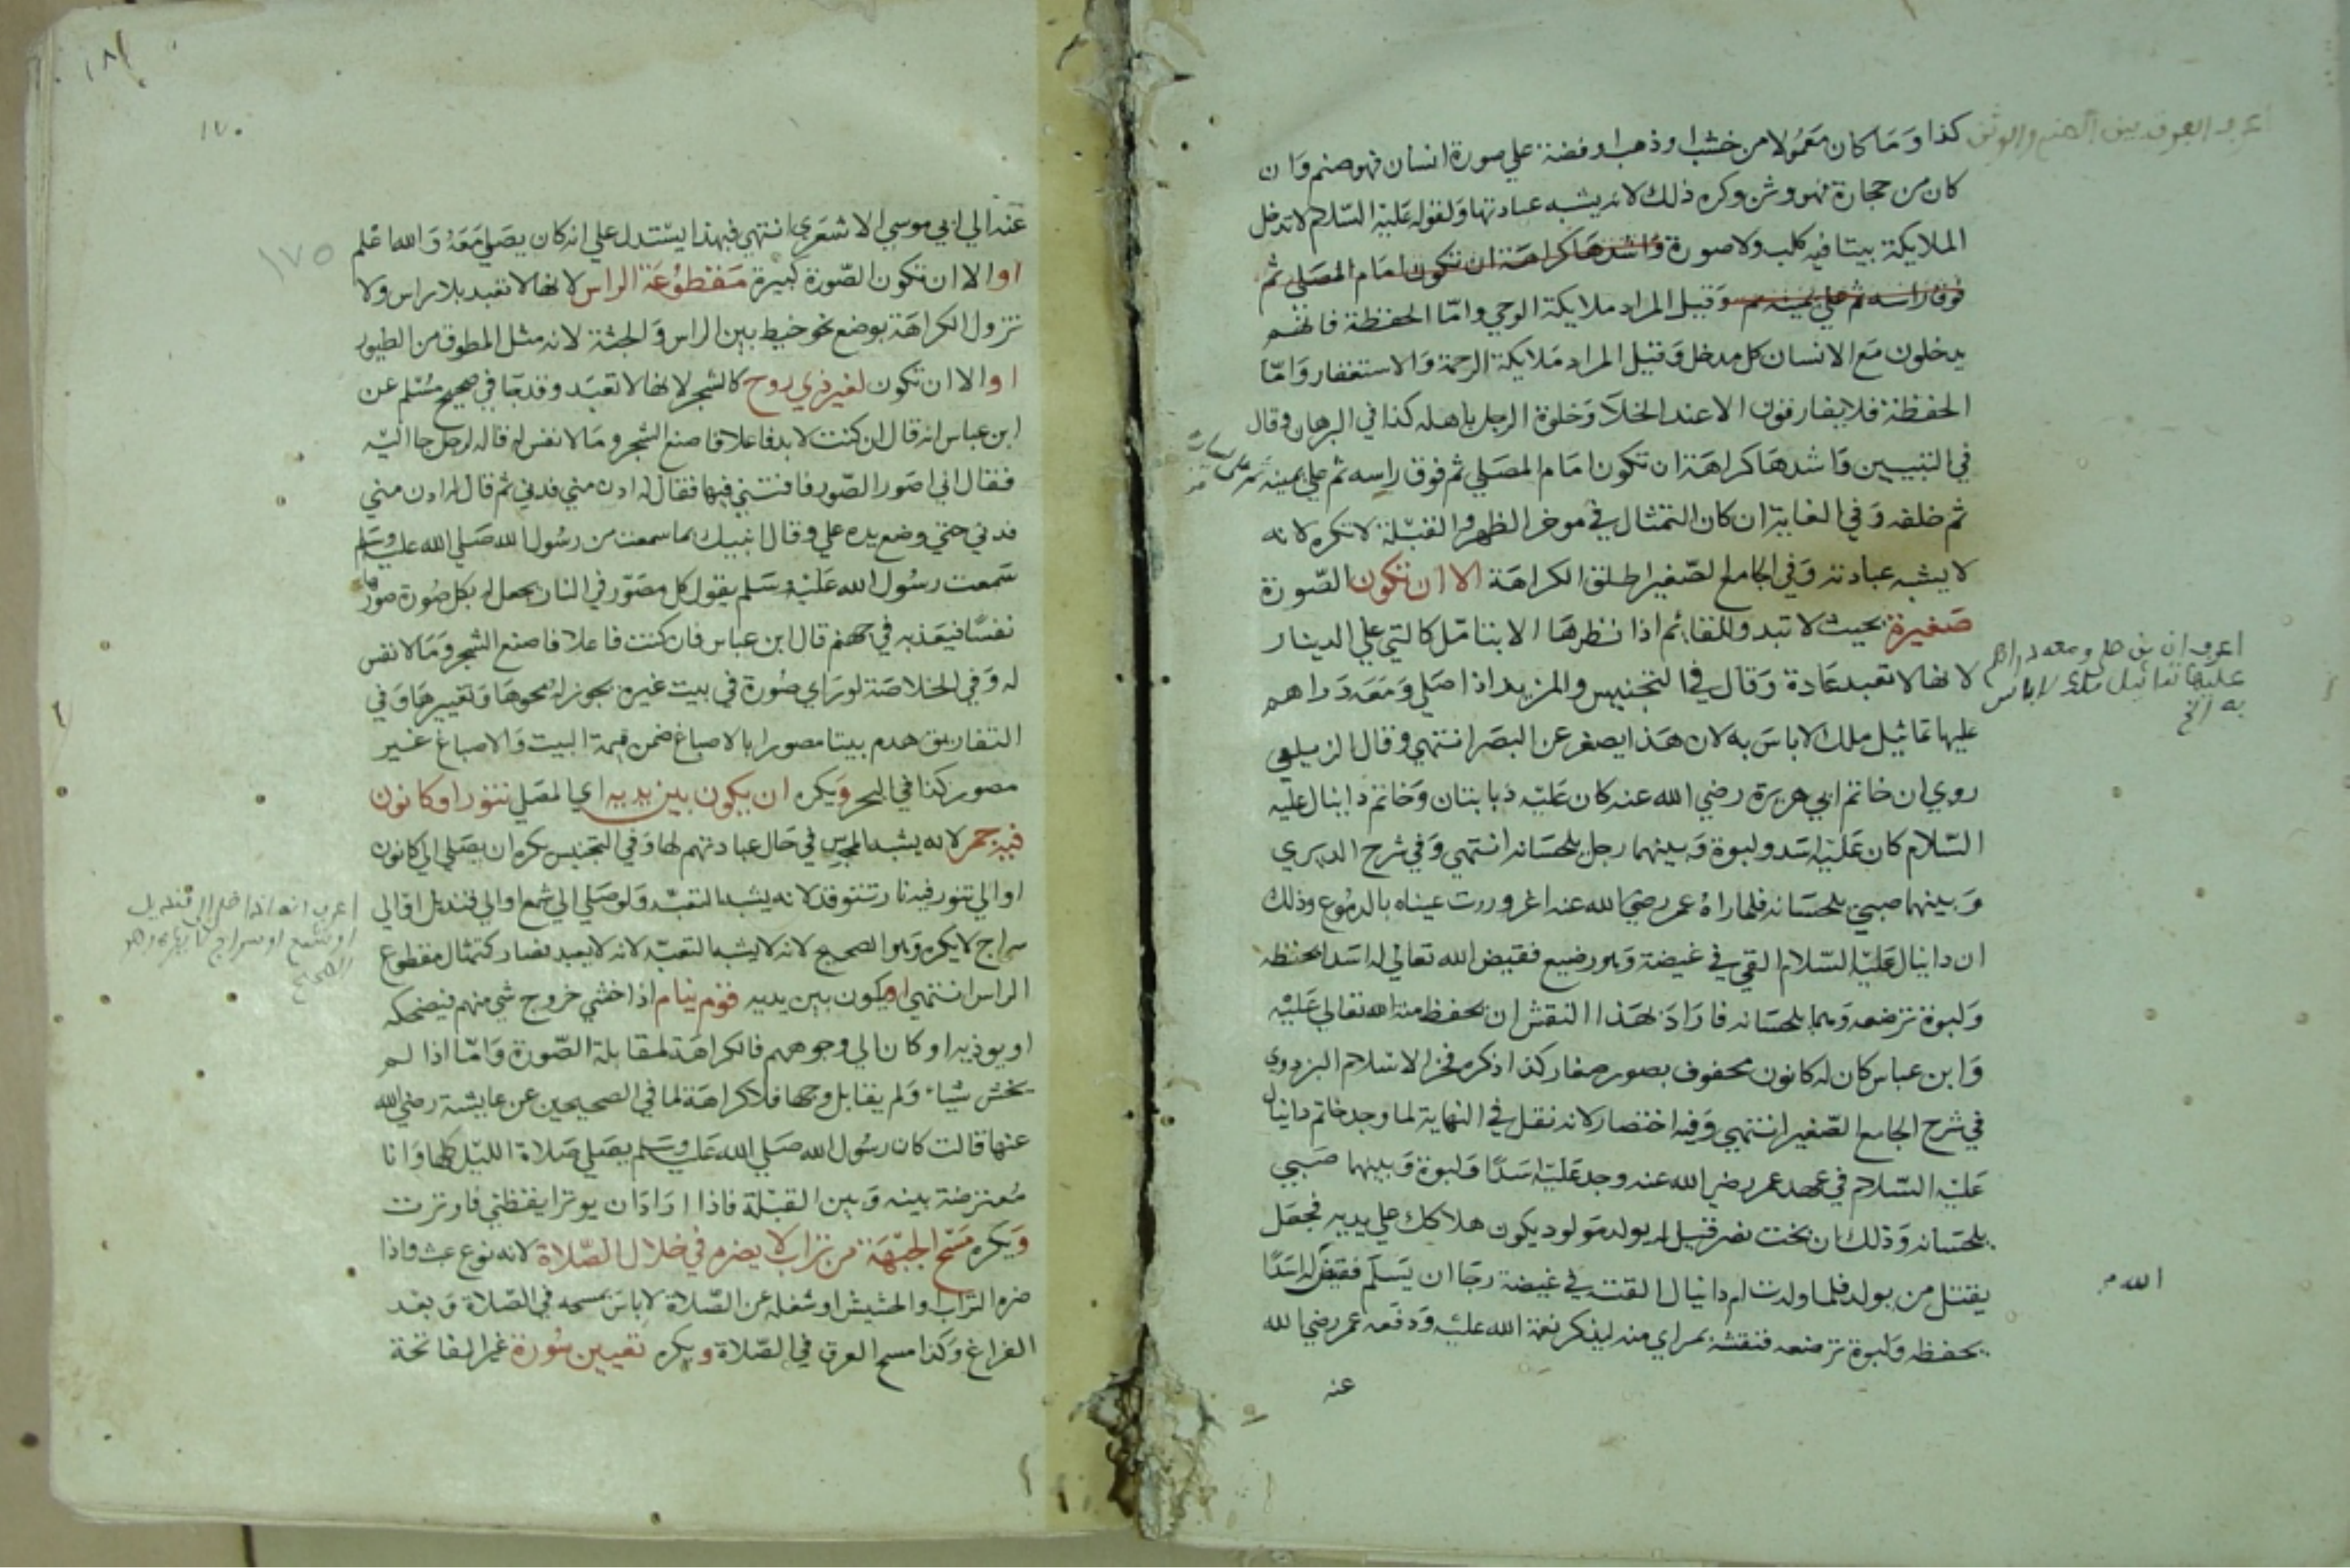 كذا وما كان معمولا من خشب او ذهب او فضة علي صورة انسان فهو صنم وان
كان من حجارة فهو وثن وكره ذلك لانه يشبه عبادتها ولقوله عليه السلام لا تدخل
الملايكة بيتا فيه كلب ولا صورة واشدها كراهة ان تكون امام المصلي ثم
فوق راسه ثم علي يمينه ثم وقيل المراد ملايكة الوحي واما الحفظة فانهم
يدخلون مع الانسان كل مدخل وقيل المراد ملايكة الرحمة والاستغفار واما
الحفظة فلا يفارقون الا عند الخلا وخلوة الرجل باهله كذا في البرهان وقال
في التبيين واشدها كراهة ان تكون امام المصلي ثم فوق راسه ثم علي يمينه
ثم خلفه وفي الغاية ان كان التمثال في موخر الظهر والقبلة لا تكره لانه
لا يشبه عبادته وفي الجامع الصغير اطلق الكراهة الا ان تكون الصورة
صغيرة بحيث لا تبدو للقائم اذا نظرها الا بتامل كالتي علي الدينار
لانها لا تعبد عادة وقال في التجنيس والمزيد اذا صلي ومعه دراهم
عليها تماثيل ملك لا باس به لان هذا يصغر عن البصر انتهي وقال الزيلعي
روي ان خاتم ابي هريرة رضي الله عنه كان عليه ذبابتان وخاتم دانيال عليه
السلام كان عليه اسد ولبوة وبينهما رجل يلحسانه انتهي وفي شرح الديري
وبينهما صبي يلحسانه فلما راه عمر رضي الله عنه اغروررت عيناه بالدموع وذلك
ان دانيال عليه السلام القي في غيضة وهو رضيع فقيض الله تعالي له اسدا يحفظه
ولبوة ترضعه وهما يلحسانه فاراد بهذا النقش ان يحفظ منة الله تعالي عليه
وابن عباس كان له كانون محفوف بصور صغار كذا ذكره فخر الاسلام البزدوي
في شرح الجامع الصغير انتهي وفيه اختصار لانه نقل في النهاية لما وجد خاتم دانيال
عليه السلام في عهد عمر رضي الله عنه وجد عليه اسدا ولبوة وبينهما صبي
يلحسانه وذلك ان بخت نصر قيل له يولد مولود يكون هلاكك علي يديه فجعل
يقتل من يولد فلما ولدت ام دانيال القته في غيضة رجا ان يسلم فقيض له اسدا
يحفظه ولبوة ترضعه فنقشه بمراي منه ليذكر نعمة الله عليه ودفعه عمر رضي الله
عنه
اعرف الفرق بين الصنم والوثن
اعرف ان من صلي ومعه دراهم
عليها تماثيل ملك لا باس
به الخ
الله
١٧٠
١٧٥
عنه الي ابي موسي الاشعري انتهي فبهذا يستدل علي انه كان يصلي معه والله اعلم
او الا ان تكون الصورة كبيرة مقطوعة الراس لانها لا تعبد بلا راس ولا
تزول الكراهة بوضع نحو خيط بين الراس والجثة لانه مثل المطوق من الطيور
او الا ان تكون لغير ذي روح كالشجر لانها لا تعبد وقد جا في صحيح مسلم عن
ابن عباس انه قال ان كنت لا بد فاعلا فاصنع الشجر وما لا نفس له قاله لرجل جا اليه
فقال اني اصور الصور فافتني فيها فقال له ادن مني فدني ثم قال له ادن مني
فدني حتي وضع يده علي وقال انبيك بما سمعت من رسول الله صلي الله عليه وسلم
سمعت رسول الله عليه وسلم يقول كل مصور في النار يجعل له بكل صورة صورها
نفسا فيعذبه في جهنم قال ابن عباس فان كنت فاعلا فاصنع الشجر وما لا نفس
له وفي الخلاصة لو راي صورة في بيت غيره يجوز له محوها وتغييرها وفي
التفاريق هدم بيتا مصورا بالاصباغ ضمن قيمة البيت والاصباغ غير
مصور كذا في البحر ويكره ان يكون بين يديه اي المصلي تنور او كانون
فيه جمر لانه يشبه المجوس في حال عبادتهم لها وفي التجنيس يكره ان يصلي الي كانون
او الي تنور فيه نار تتوقد لانه يشبه التعبد ولو صلي الي شمع او الي قنديل او الي
سراج لا يكره وهو الصحيح لانه لا يشبه التعبد لانه لا يعبد فصار كتمثال مقطوع
الراس انتهي او يكون بين يديه قوم نيام اذا خشي خروج شي منهم فيضحكه
او يوذيه او كان الي وجوههم فالكراهة لمقابلة الصورة واما اذا لم
يخش شياء ولم يقابل وجها فلا كراهة لما في الصحيحين عن عايشة رضي الله
عنها قالت كان رسول الله صلي الله عليه وسلم يصلي صلاة الليل كلها وانا
معترضة بينه وبين القبلة فاذا اراد ان يوتر ايقظني فاوترت
ويكره مسح الجبهة من تراب لا يضره في خلال الصلاة لانه نوع عبث فاذا
ضره التراب والحشيش او شغله عن الصلاة لا باس بمسحه في الصلاة وبعد
الفراغ وكذا مسح العرق في الصلاة ويكره تعيين سورة غير الفاتحة
اعرف انه اذا صلي الي قنديل
او شمع او سراج لا يكره وهو
الصحيح